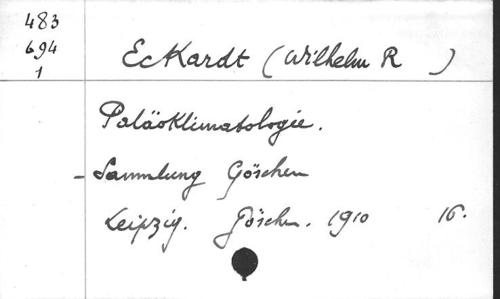 483
694
1
Eckardt (Wilhelm R )
Paläoklimatologie.
- Sammlung Göschen
Leipzig. Göschen. 1910 16.